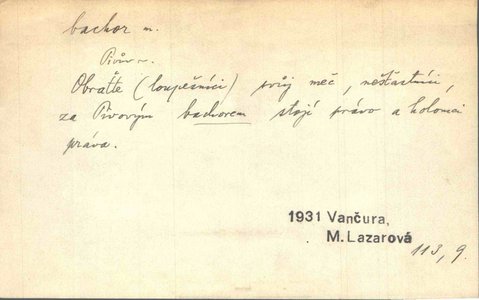 bachor m.
Pivův ~.
Obraťte (loupežníci) svůj meč, nešťastníci,
za Pivovým bachorem stojí právo a holomci
práva.
1931 Vančura,
M. Lazarová
113, 9.